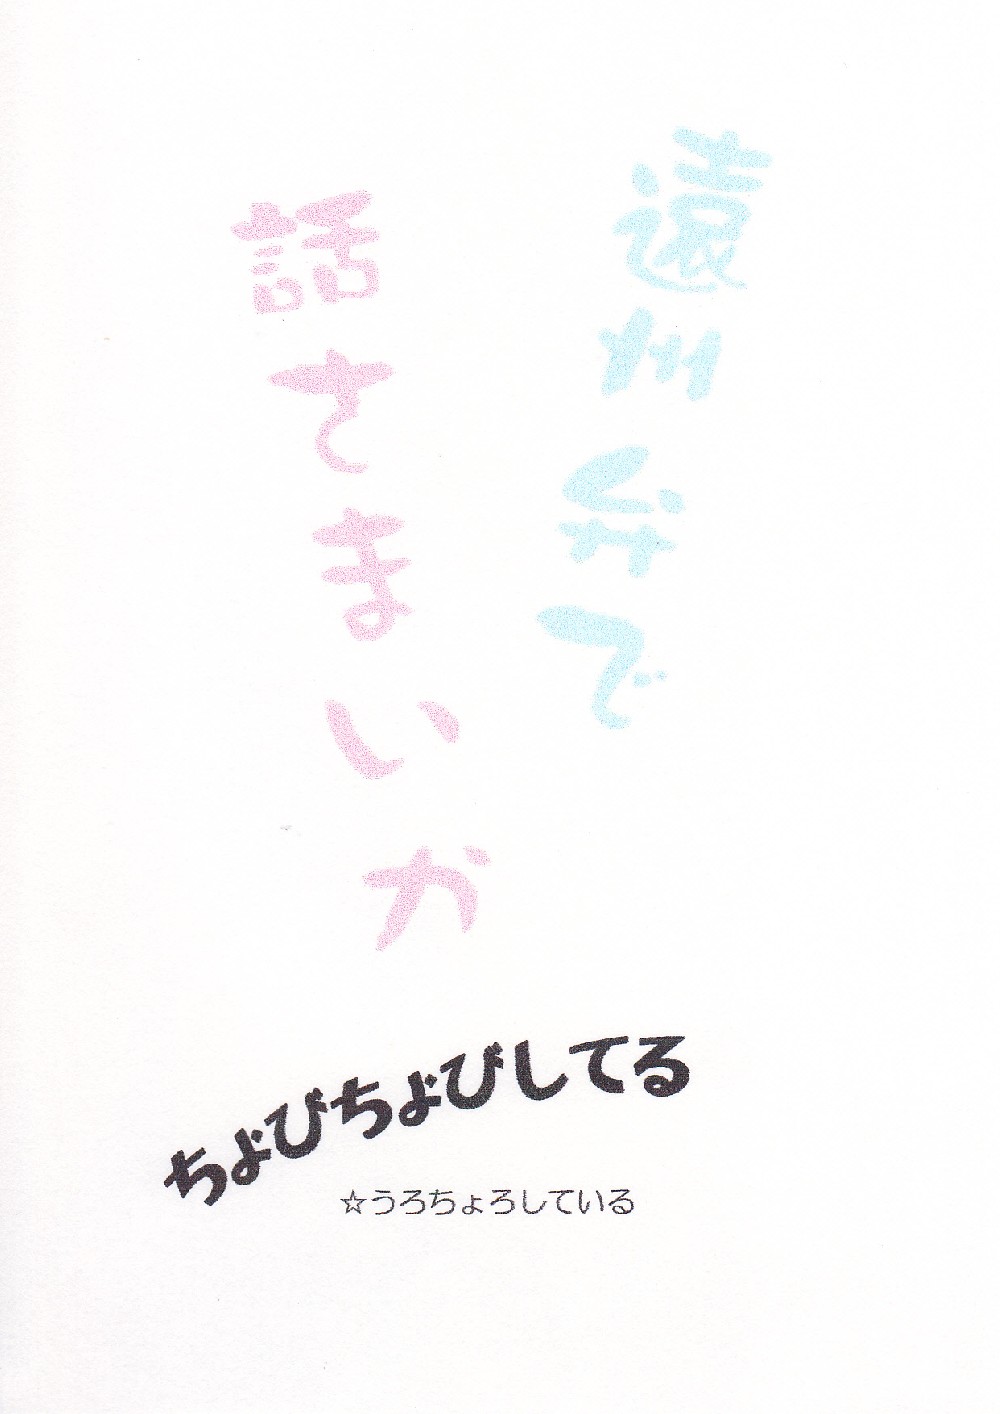 遠州弁で
話さまいか
ちょびちょびしてる
☆うろちょろしている